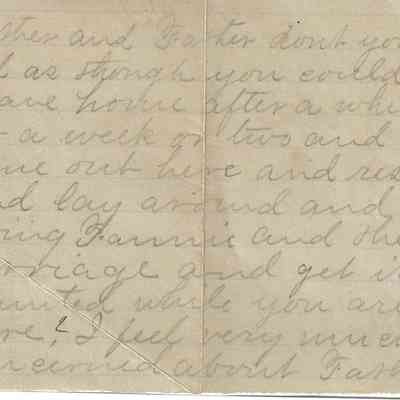 ther and Father dont you
l as though you could
eave home after a whi
r a week or two and
me out here and res
nd lay around and
ring Fannie and the
rriage and get it
ainted while you are
ere, I feel very muc
ncerned about Fath